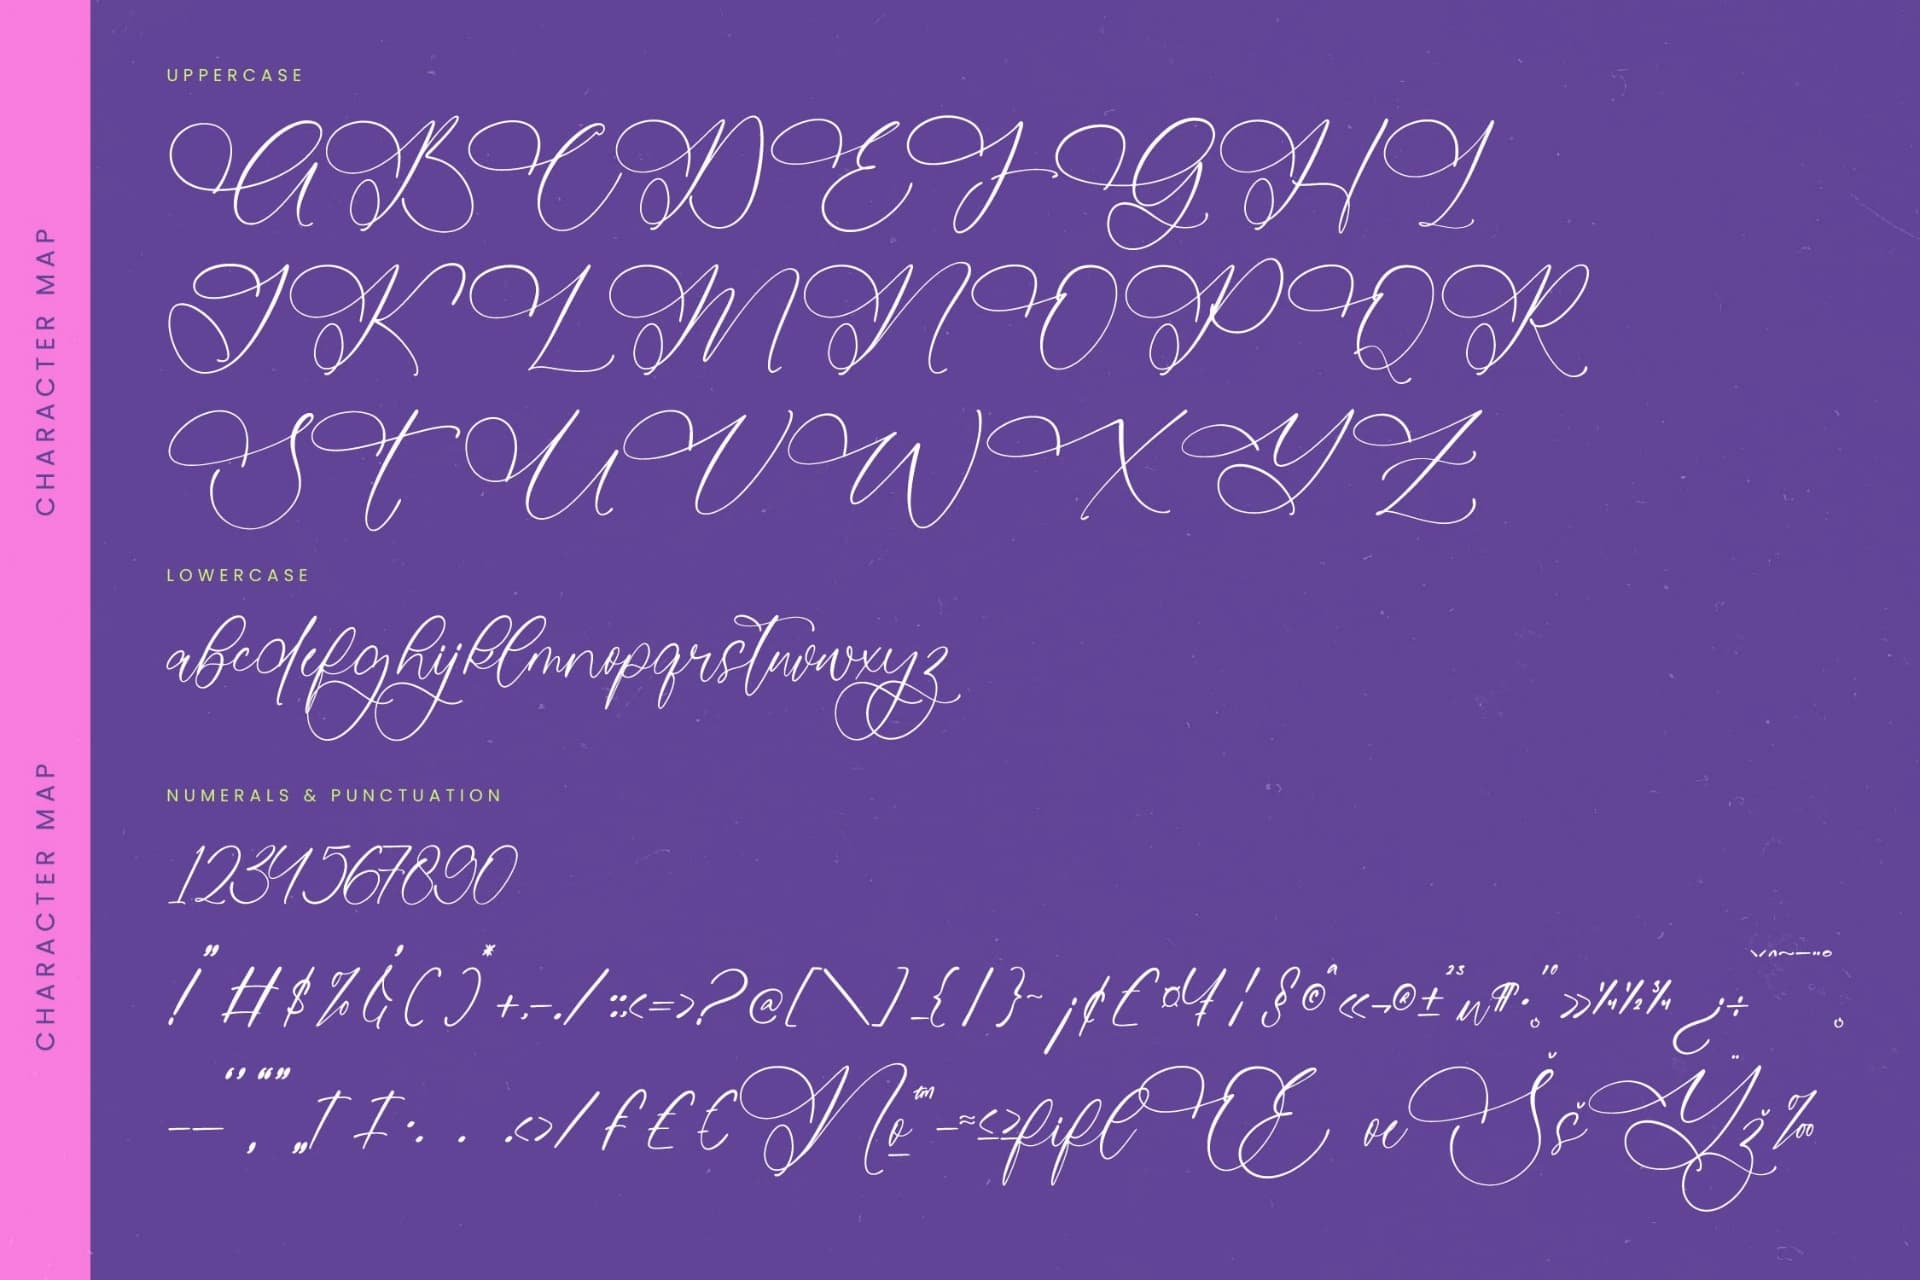 CHARACTER MAP
CHARACTER MAP
UPPERCASE
ABCDEFGHI
JKLMNOPQR
STUVWXYZ
LOWERCASE
abcdefghijklmnopqrstuvwxyz
NUMERALS & PUNCTUATION
1234567890
!"#$%&'()*+,-./:;<=>?@[\]_{|}~¡¢£¤¥¦§©ª«¬®±²³µ¶·¸¹º»¼½¾¿÷
–—‘’‚“”„†‡•…‹›⁄₣₤€№™−≈≤≥fiflŒœŠšŸž‰